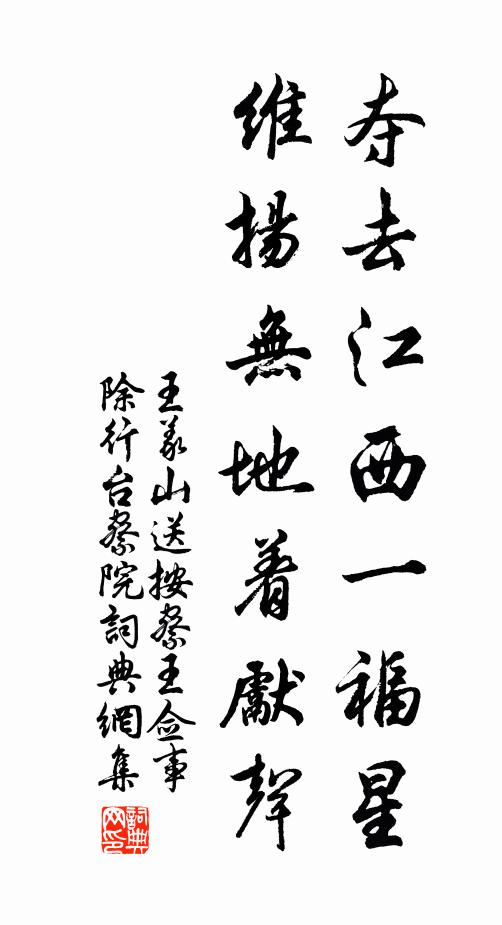 夺去江西一福星
維揚無地着獻聲
王义山送按察王佥事
除行台察院詞典網集
詞典网印